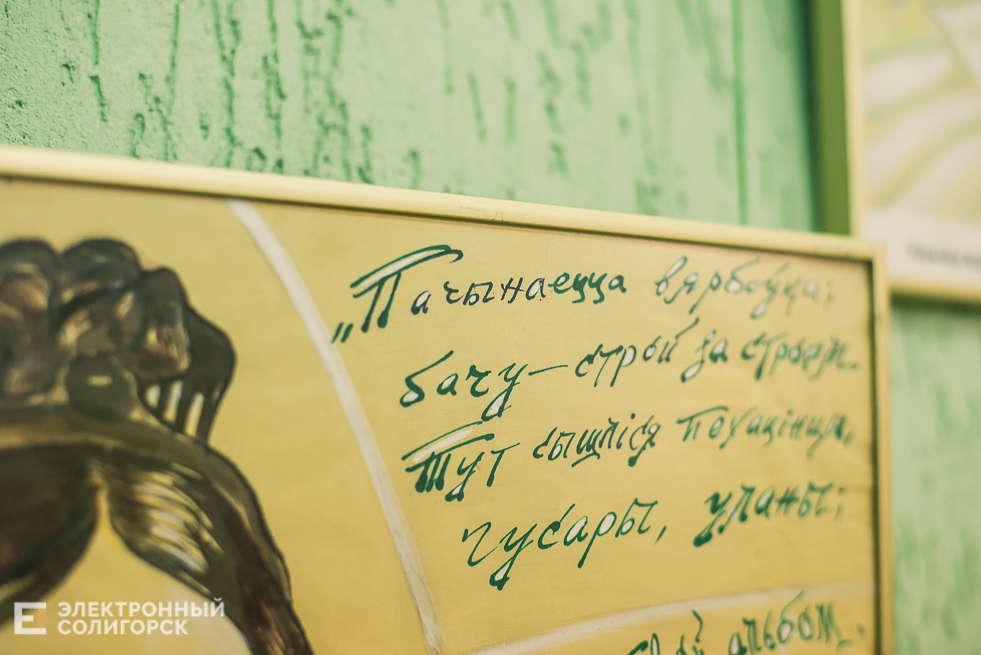 „Пачынаецца вярбоўка;
бачу — строй за строем.
Тут сышліся пехацінцы,
гусары, уланы;
альбом
ЭЛЕКТРОННЫЙ
СОЛИГОРСК